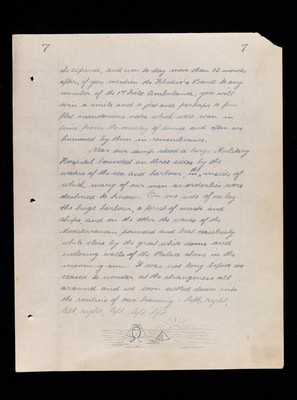 7 7
its expense, and even to day more than 12 months
after, if you mention the Khedive's Band to any
member of the 1st Field Ambulance, you will
win a smile and a jest and perhaps a few
flat monotonous notes which were won in
from the of sound and often are
hummed by them in remembrance.
Near our camp stood a large Military
Hospital bounded on three sides by the
waters of the sea and harbour, the inside of
which, many of our men as orderlies were
destined to know. On one side of us lay
the huge harbour, a forest of masts and
ships, and on the other the waves of the
Mediterranean pounded and beat restlessly
while close by the great white dome and
enclosing walls of the Palace shone in the
morning sun. It was not long before we
ceased to wonder at the strangeness all
around and we soon settled down into
the routine of our training - left, right,
left, right, left, left, left.